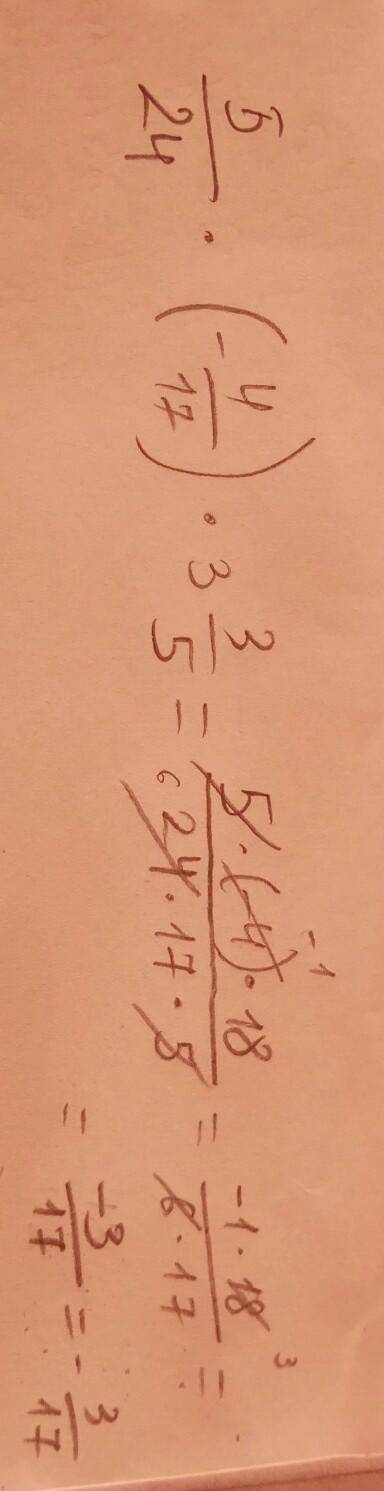 5/24 · (-4/17) · 3 3/5 = 5·(-4)·18 / 24·17·5 = -1·18 / 6·17 =
-1 6 3
= -3/17 = -3/17